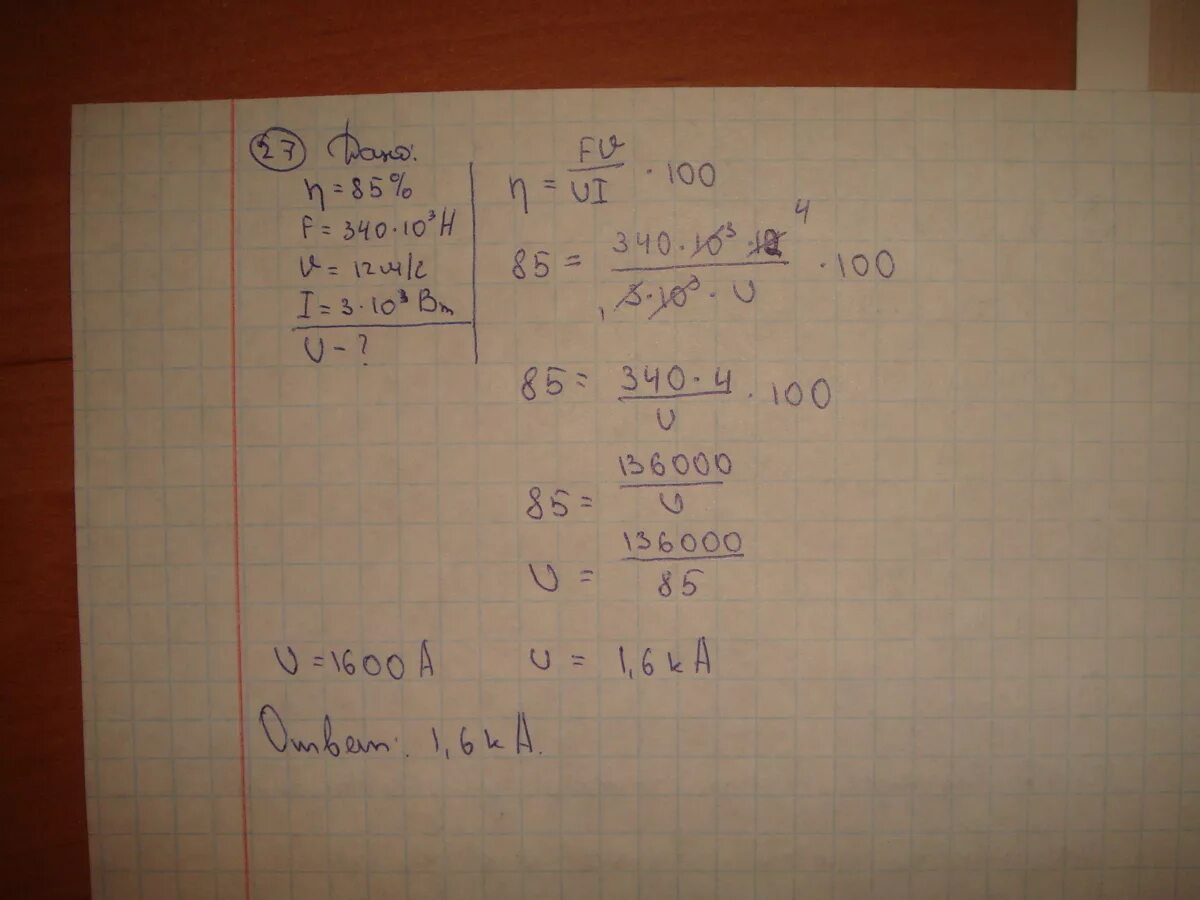 27 Дано:
η = 85%
F = 340·10³Н
v = 12м/с
I = 3·10³ Вт
U - ?
η = Fv/UI · 100
85 = 340·10³·12 4/1 3·10³·U · 100
85 = 340·4/U · 100
85 = 136000/U
U = 136000/85
U = 1600 А
U = 1,6 кА
Ответ: 1,6 кА.